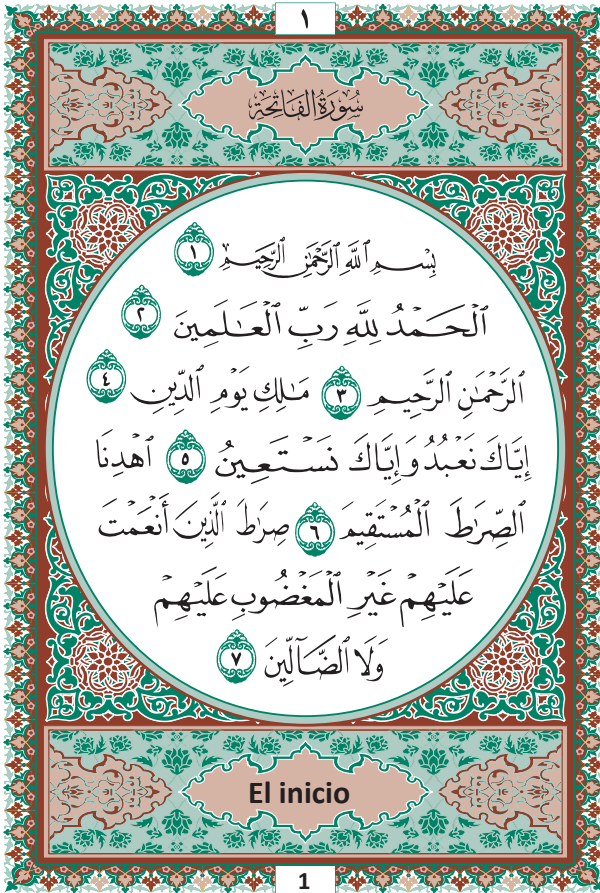 ١
سُورَةُ الفَاتِحَةِ
بِسْمِ ٱللَّهِ ٱلرَّحْمَٰنِ ٱلرَّحِيمِ ١
ٱلْحَمْدُ لِلَّهِ رَبِّ ٱلْعَـٰلَمِينَ ٢
ٱلرَّحْمَٰنِ ٱلرَّحِيمِ ٣ مَـٰلِكِ يَوْمِ ٱلدِّينِ ٤
إِيَّاكَ نَعْبُدُ وَإِيَّاكَ نَسْتَعِينُ ٥ ٱهْدِنَا
ٱلصِّرَٰطَ ٱلْمُسْتَقِيمَ ٦ صِرَٰطَ ٱلَّذِينَ أَنْعَمْتَ
عَلَيْهِمْ غَيْرِ ٱلْمَغْضُوبِ عَلَيْهِمْ
وَلَا ٱلضَّآلِّينَ ٧
El inicio
1